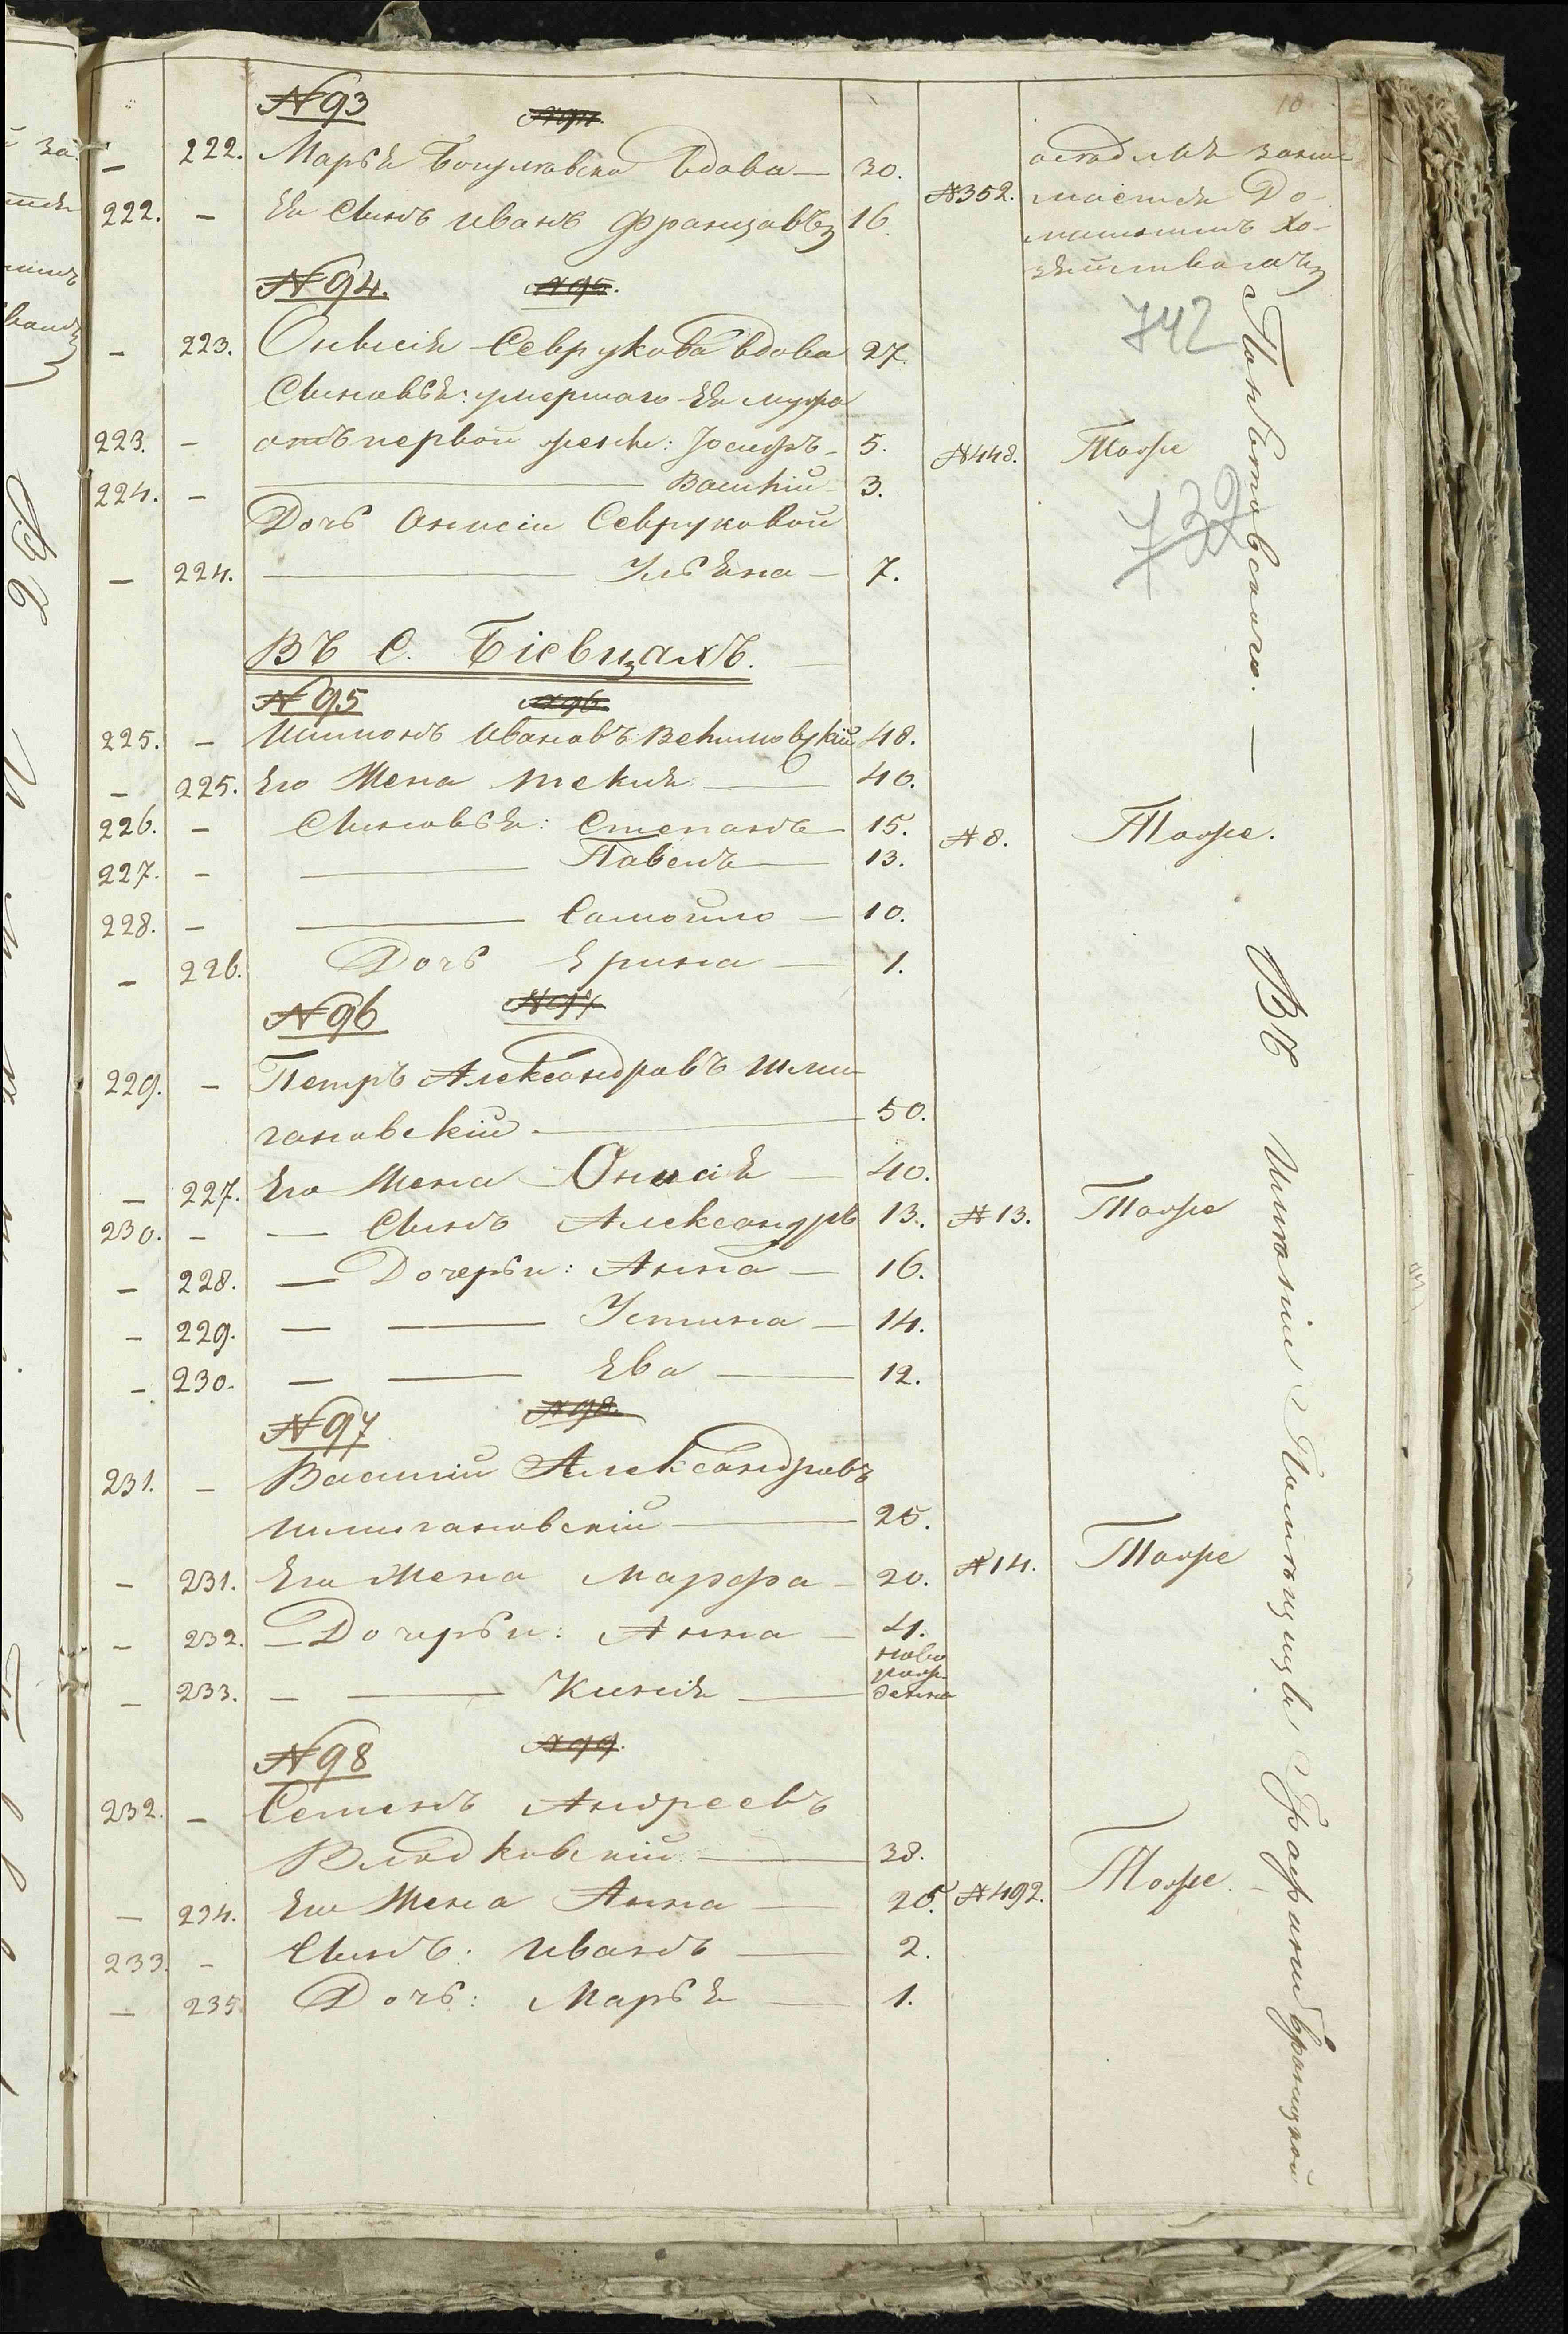 10
№ 93 № 94.
— 222. Марья Богуловска Вдова — 30. оседлъ заним
222. — Ея Сынъ Иванъ Францовъ 16. № 352. мается До-
машнимъ Хо-
зяйствомъ
№ 94. № 95.
742
— 223. Онисія Севрукова вдова 27.
Сыновья: умершаго Ея мужа
223. — отъ первой жены: Іосифъ — 5. № 448. Тоже
224. — Василій 3.
732
Дочь Онисіи Севруковой
— 224. Ульяна — 7.
Въ С. Біевцахъ.
№ 95 № 96.
225. — Шимонъ Ивановъ 48.
— 225. Его Жена Текля 40.
226. — Сыновья: Степанъ 15. № 8. Тоже.
227. — Павелъ 13.
228. — Самойло — 10.
— 226. Дочь Ерина — 1.
№ 96 № 97
229. — Петръ Александровъ Шми-
гановскій 50.
— 227. Его Жена Онисія — 40.
230. — — Сынъ Александръ 13. № 13. Тоже
— 228. — Дочерьи: Анна — 16.
— 229. — Устина — 14.
— 230. — Ева 12.
№ 97 № 98.
231. — Василій Александровъ
Шмигановскій 25.
— 231. Его Жена Марфа — 20. № 14. Тоже
— 232. — Дочерьи: Анна — 4.
— 233. — Ксенія ново рож денна
№ 98 № 99.
232. — Семенъ Андреевъ
Влодковскій 38.
— 234. Его Жена Анна 25. № 492. Тоже.
233. — Сынъ: Иванъ 2.
— 235 Дочь: Марья 1.
Въ Имѣніи Помѣщицы Графини Браницкой